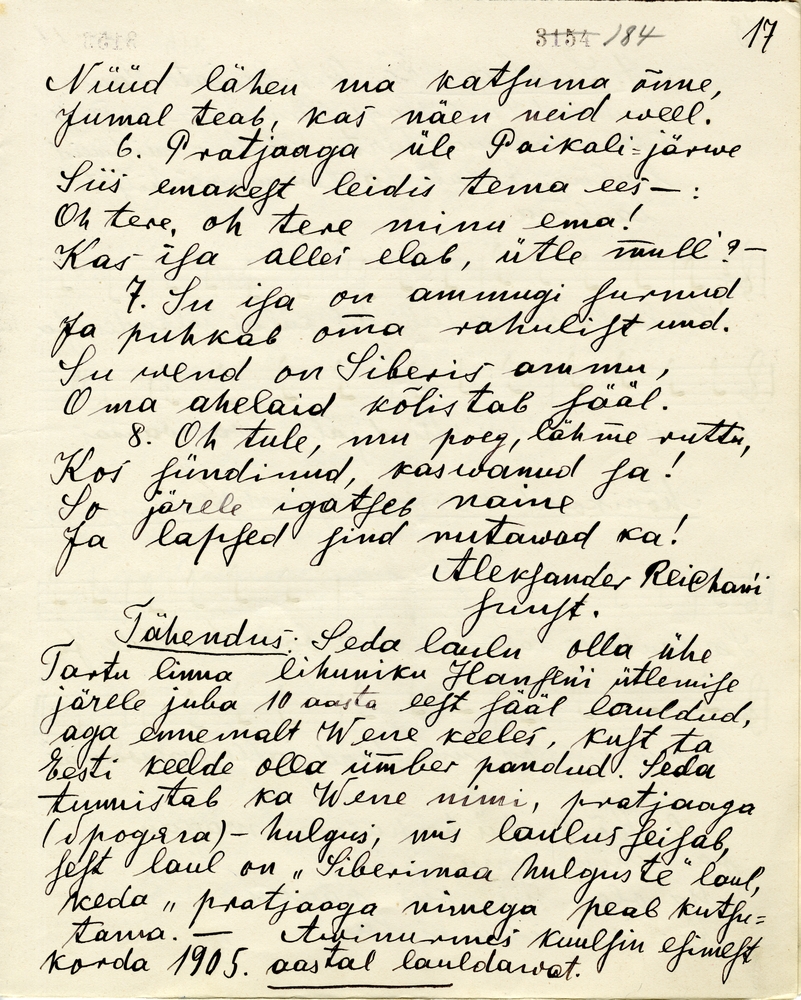 3154 184 17
Nüüd lähen ma katsuma õnne,
Jumal teab, kas näen neid weel.
6. Pratjaaga üle Paikali-järwe
Siis emakest leidis tema ees — :
Oh tere, oh tere minu ema!
Kas isa alles elab, ütle mull'? —
7. Su isa on ammugi surnud
Ja puhkab om̄a rahulist und.
Su wend on Siberis ammu,
Oma ahelaid kõlistab sääl.
8. Oh tule, mu poeg, lähme ruttu,
Kos sündinud, kaswanud sa!
So järele igatseb naine
Ja lapsed sind nutawad ka!
Aleksander Reichan'i
suust.
Tähendus: Seda laulu olla ühe
Tartu linna lihuniku Hansen'i ütlemise
järele juba 10 aasta eest sääl lauldud,
aga ennemalt Wene keeles, kust ta
Eesti keelde olla üm̄ber pandud. Seda
tunnistab ka Wene nimi, pratjaaga
(бродяга) – hulgus, mis laulus seisab,
sest laul on „Siberimaa hulguste" laul,
keda „pratjaaga nimega peab kutsu=
tama. — Awinurmes kuulsin esimest
korda 1905. aastal lauldawat.